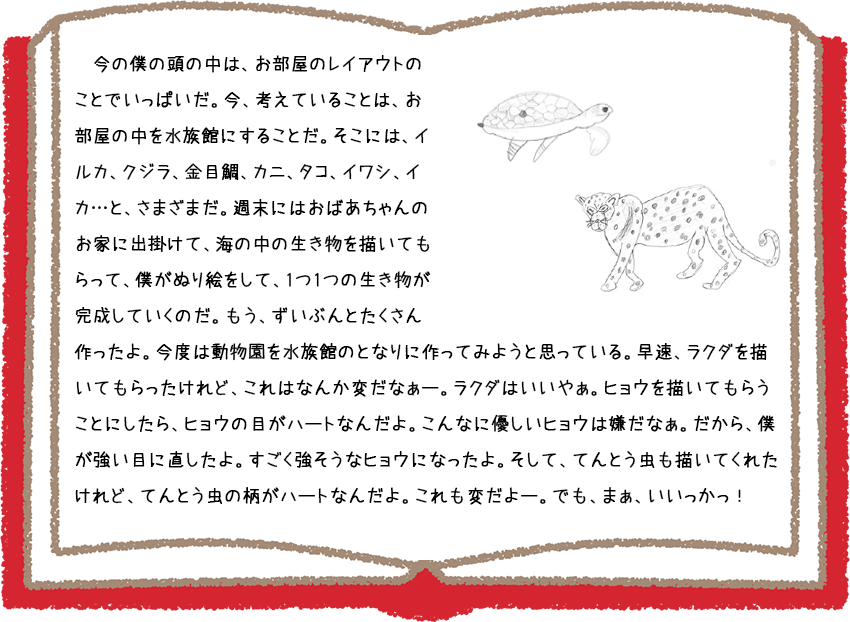 今の僕の頭の中は、お部屋のレイアウトの
ことでいっぱいだ。今、考えていることは、お
部屋の中を水族館にすることだ。そこには、イ
ルカ、クジラ、金目鯛、カニ、タコ、イワシ、イ
カ…と、さまざまだ。週末にはおばあちゃんの
お家に出掛けて、海の中の生き物を描いても
らって、僕がぬり絵をして、1つ1つの生き物が
完成していくのだ。もう、ずいぶんとたくさん
作ったよ。今度は動物園を水族館のとなりに作ってみようと思っている。早速、ラクダを描
いてもらったけれど、これはなんか変だなぁー。ラクダはいいやぁ。ヒョウを描いてもらう
ことにしたら、ヒョウの目がハートなんだよ。こんなに優しいヒョウは嫌だなぁ。だから、僕
が強い目に直したよ。すごく強そうなヒョウになったよ。そして、てんとう虫も描いてくれた
けれど、てんとう虫の柄がハートなんだよ。これも変だよー。でも、まぁ、いいっかっ！